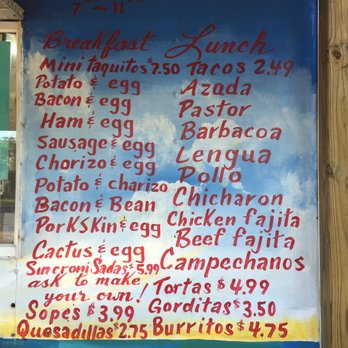 7 - 11
Breakfast
Mini taquitos $7.50
Potato & egg
Bacon & egg
Ham & egg
Sausage & egg
Chorizo & egg
Potato & charizo
Bacon & Bean
PorkSkin & egg
Cactus & egg
Sincroni Sadas $5.99
ask to make
your own!
Sopes $3.99
Quesadillas $2.75
Lunch
Tacos 2.49
Azada
Pastor
Barbacoa
Lengua
Pollo
Chicharon
Chicken fajita
Beef fajita
Campechanos
Tortas $4.99
Gorditas $3.50
Burritos $4.75